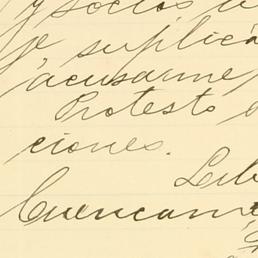 y socios
suplica
acusarme
Protesto
ciones.
Lib
Cuencam